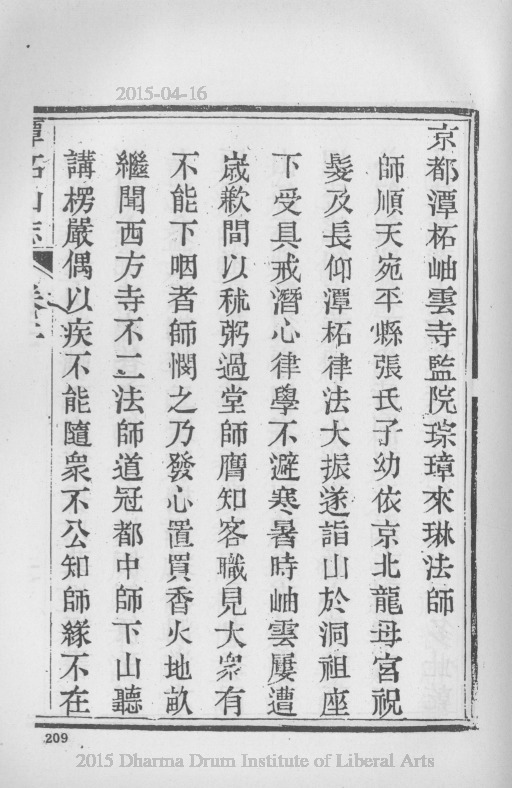 2015-04-16
京都潭柘岫雲寺監院琮璋來琳法師
師順天宛平縣張氏子幼依京北龍母宮祝
髮及長仰潭柘律法大振遂詣山於洞祖座
下受具戒潛心律學不避寒暑時岫雲屢遭
歲歉間以秫粥過堂師膺知客職見大衆有
不能下咽者師憫之乃發心置買香火地畝
繼聞西方寺不二法師道冠都中師下山聽
講楞嚴偶以疾不能隨衆不公知師緣不在
潭柘山志 卷二
209
2015 Dharma Drum Institute of Liberal Arts